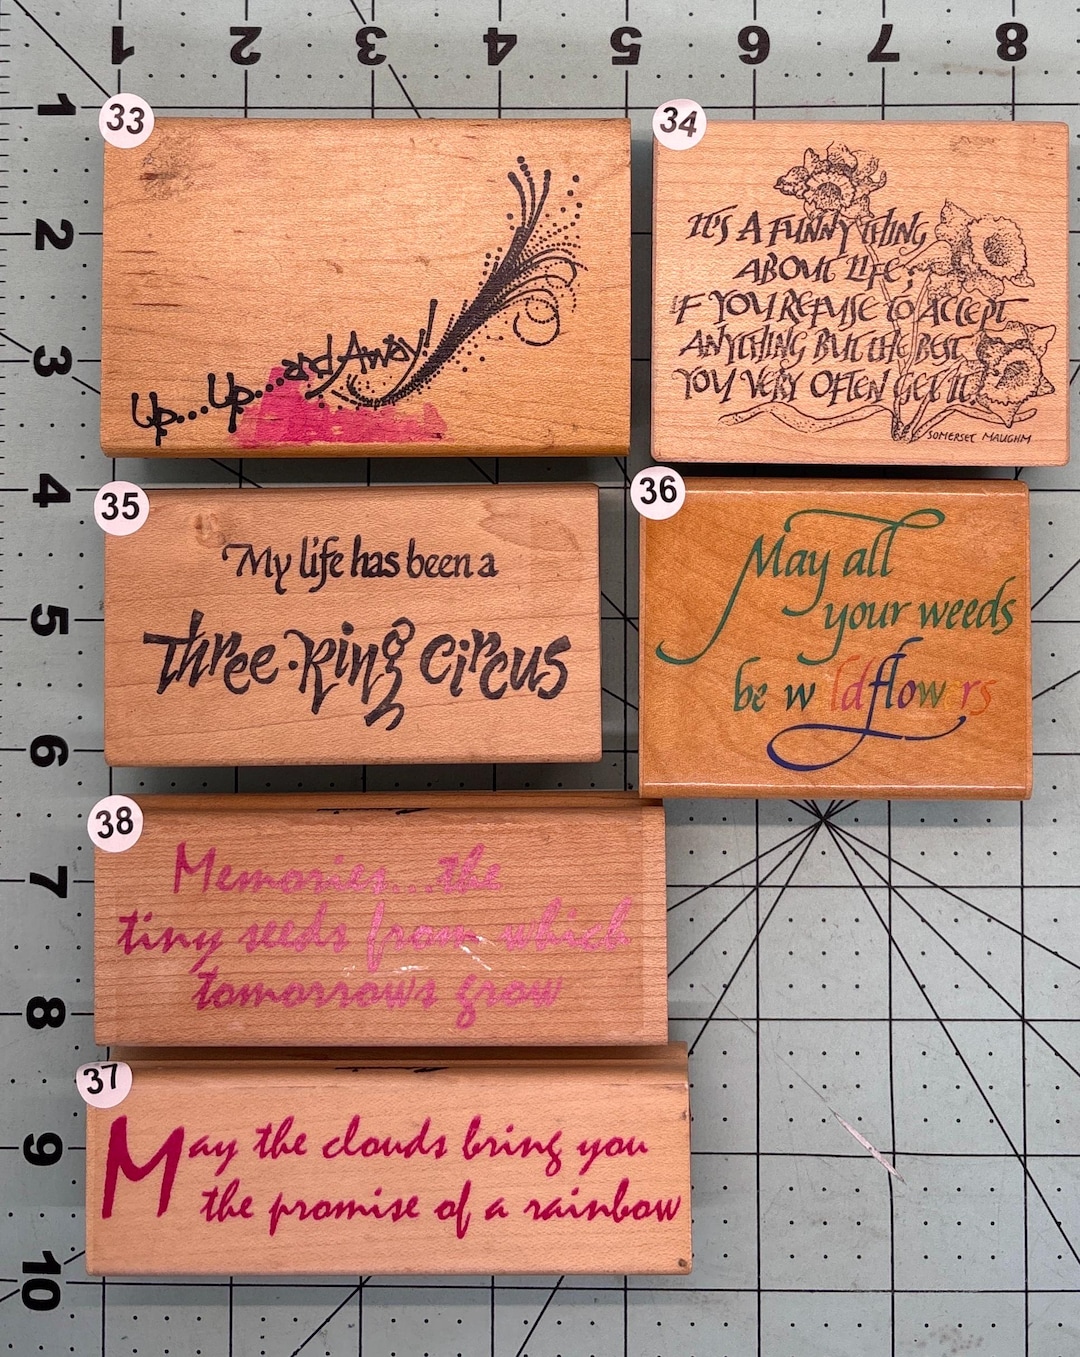 1 2 3 4 5 6 7 8
1
2
3
4
5
6
7
8
9
10
33
Up...Up...and Away!
34
IT'S A FUNNY THING
ABOUT LIFE;
IF YOU REFUSE TO ACCEPT
ANYTHING BUT THE BEST
YOU VERY OFTEN GET IT.
SOMERSET MAUGHM
35
My life has been a
three-Ring circus
36
May all
your weeds
be w ldflow rs
38
Memories...the
tiny seeds from which
tomorrows grow
37
May the clouds bring you
the promise of a rainbow